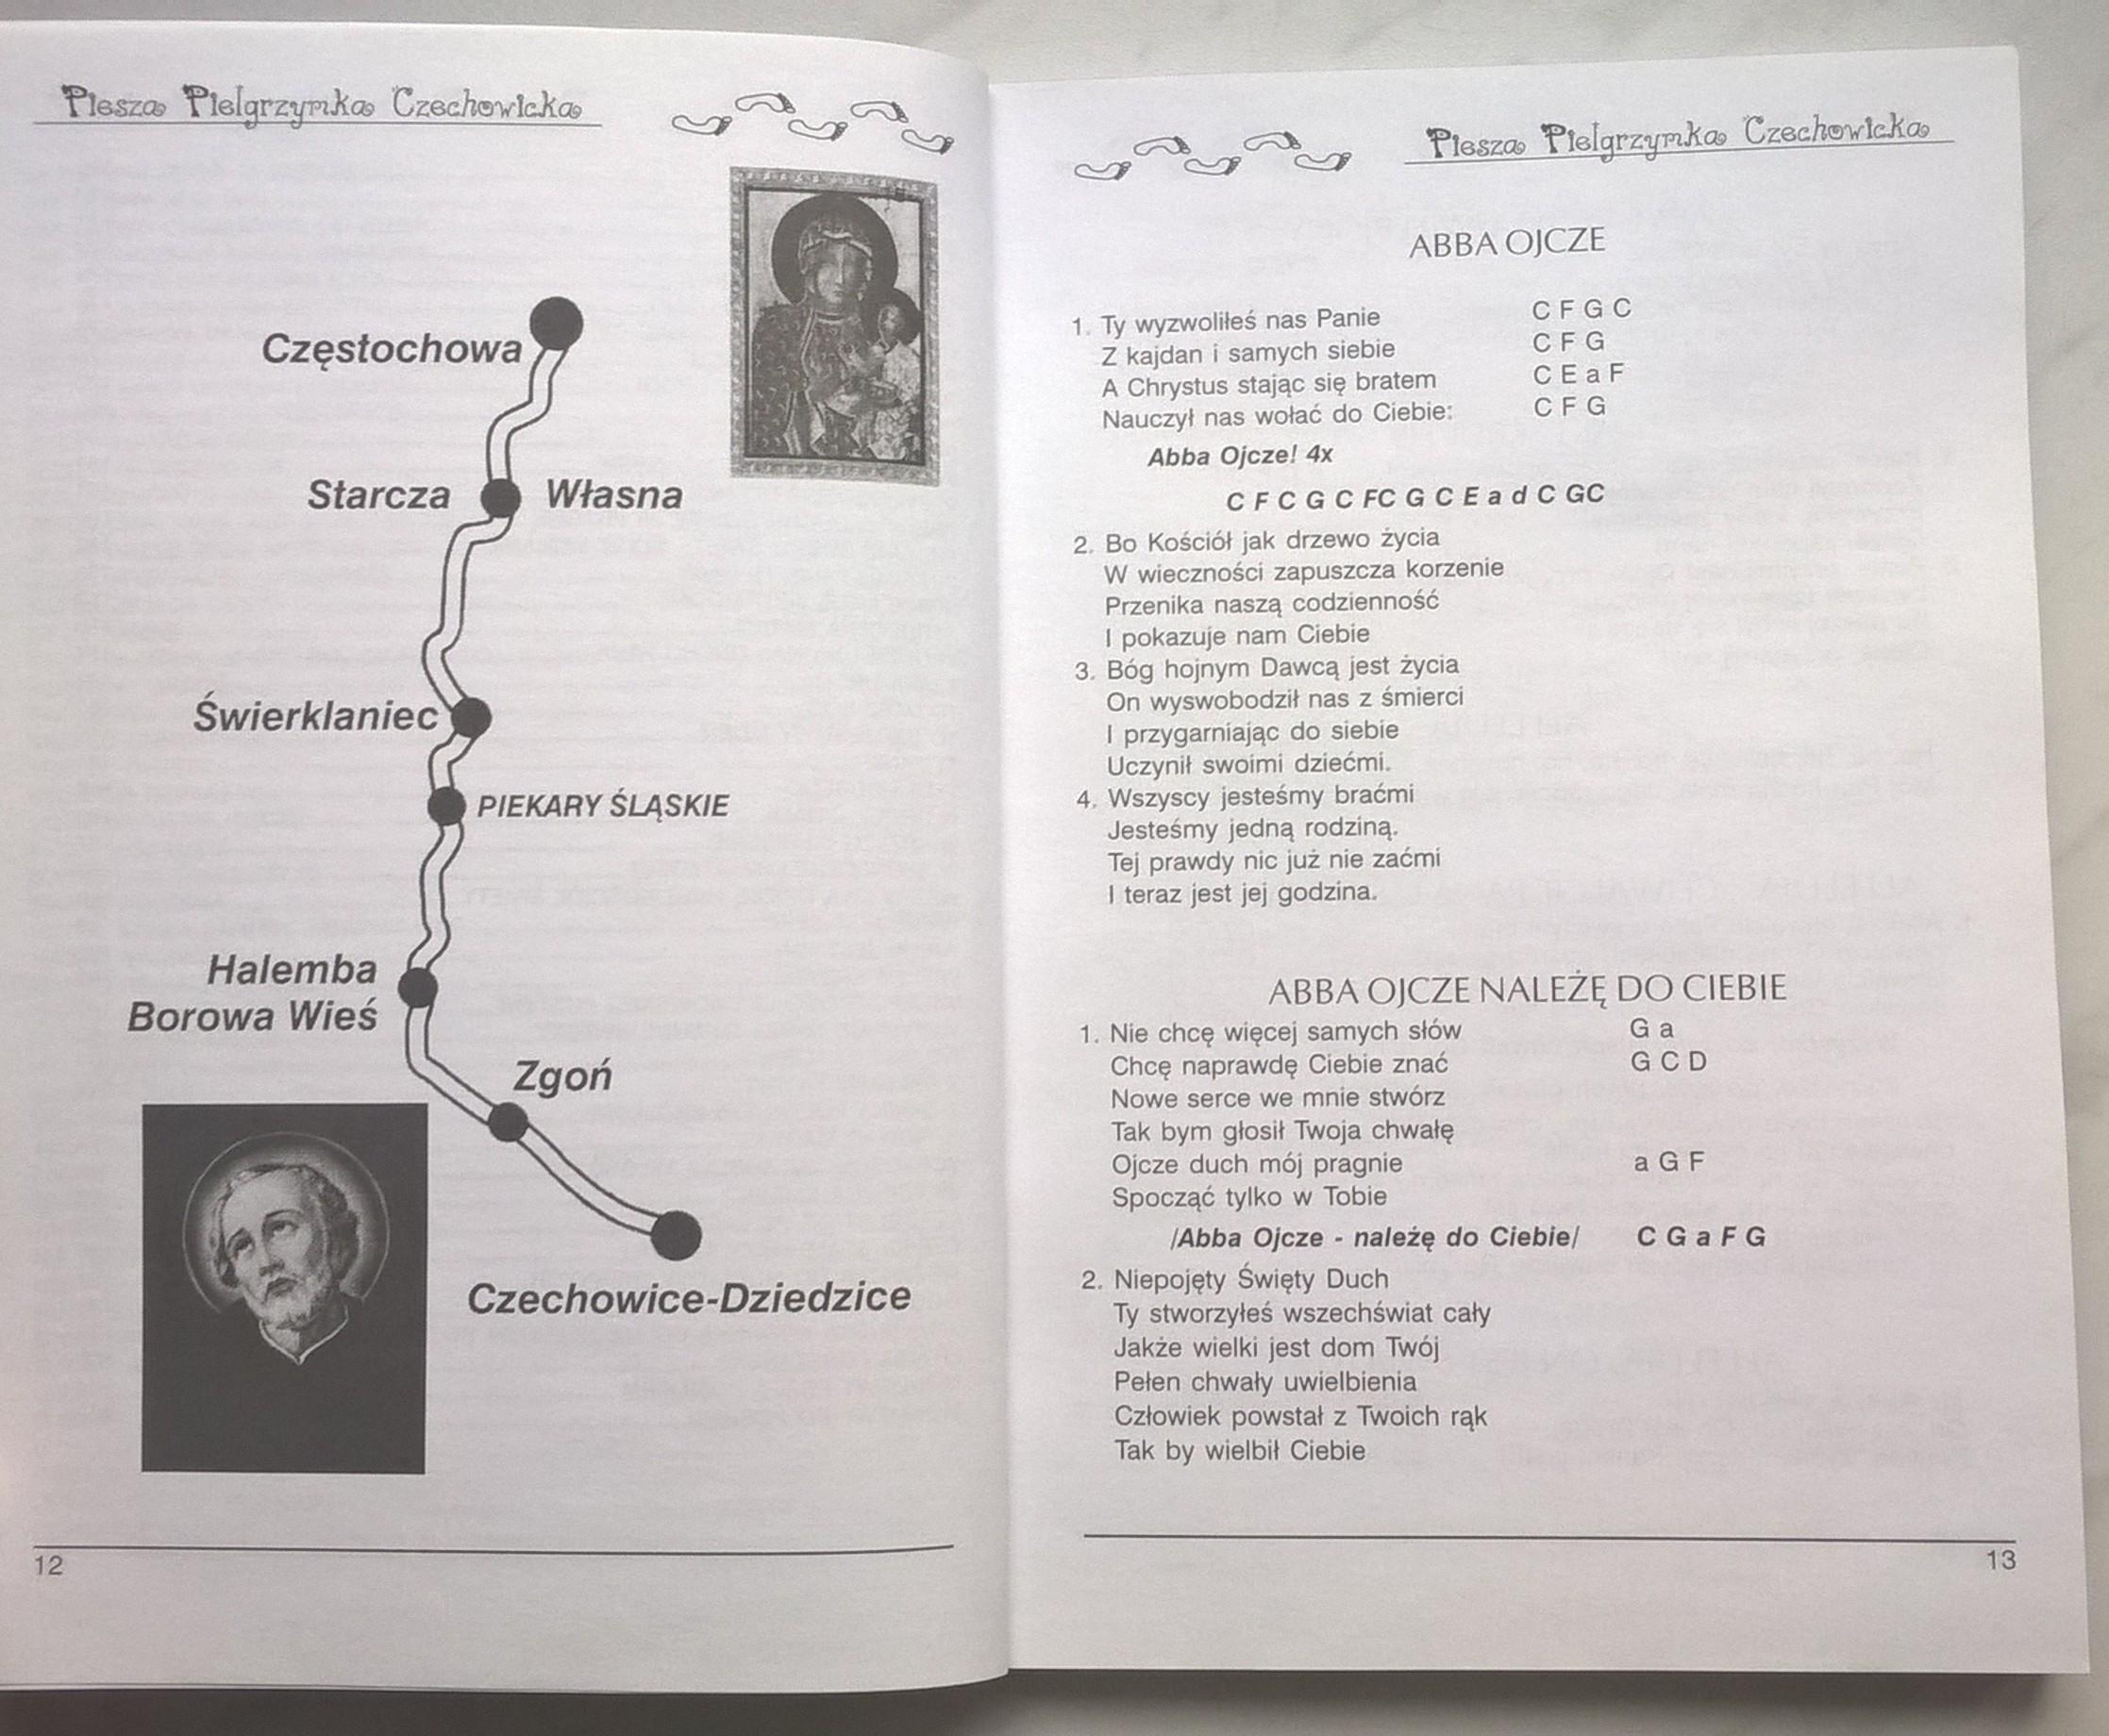 Piesza Pielgrzymka Czechowicka
Częstochowa
Starcza Własna
Świerklaniec
PIEKARY ŚLĄSKIE
Halemba
Borowa Wieś
Zgoń
Czechowice-Dziedzice
12
Piesza Pielgrzymka Czechowicka
ABBA OJCZE
1. Ty wyzwoliłeś nas Panie C F G C
Z kajdan i samych siebie C F G
A Chrystus stając się bratem C E a F
Nauczył nas wołać do Ciebie: C F G
Abba Ojcze! 4x
C F C G C FC G C E a d C GC
2. Bo Kościół jak drzewo życia
W wieczności zapuszcza korzenie
Przenika naszą codzienność
I pokazuje nam Ciebie
3. Bóg hojnym Dawcą jest życia
On wyswobodził nas z śmierci
I przygarniając do siebie
Uczynił swoimi dziećmi.
4. Wszyscy jesteśmy braćmi
Jesteśmy jedną rodziną.
Tej prawdy nic już nie zaćmi
I teraz jest jej godzina.
ABBA OJCZE NALEŻĘ DO CIEBIE
1. Nie chcę więcej samych słów G a
Chcę naprawdę Ciebie znać G C D
Nowe serce we mnie stwórz
Tak bym głosił Twoja chwałę
Ojcze duch mój pragnie a G F
Spocząć tylko w Tobie
/Abba Ojcze - należę do Ciebie/ C G a F G
2. Niepojęty Święty Duch
Ty stworzyłeś wszechświat cały
Jakże wielki jest dom Twój
Pełen chwały uwielbienia
Człowiek powstał z Twoich rąk
Tak by wielbił Ciebie
13